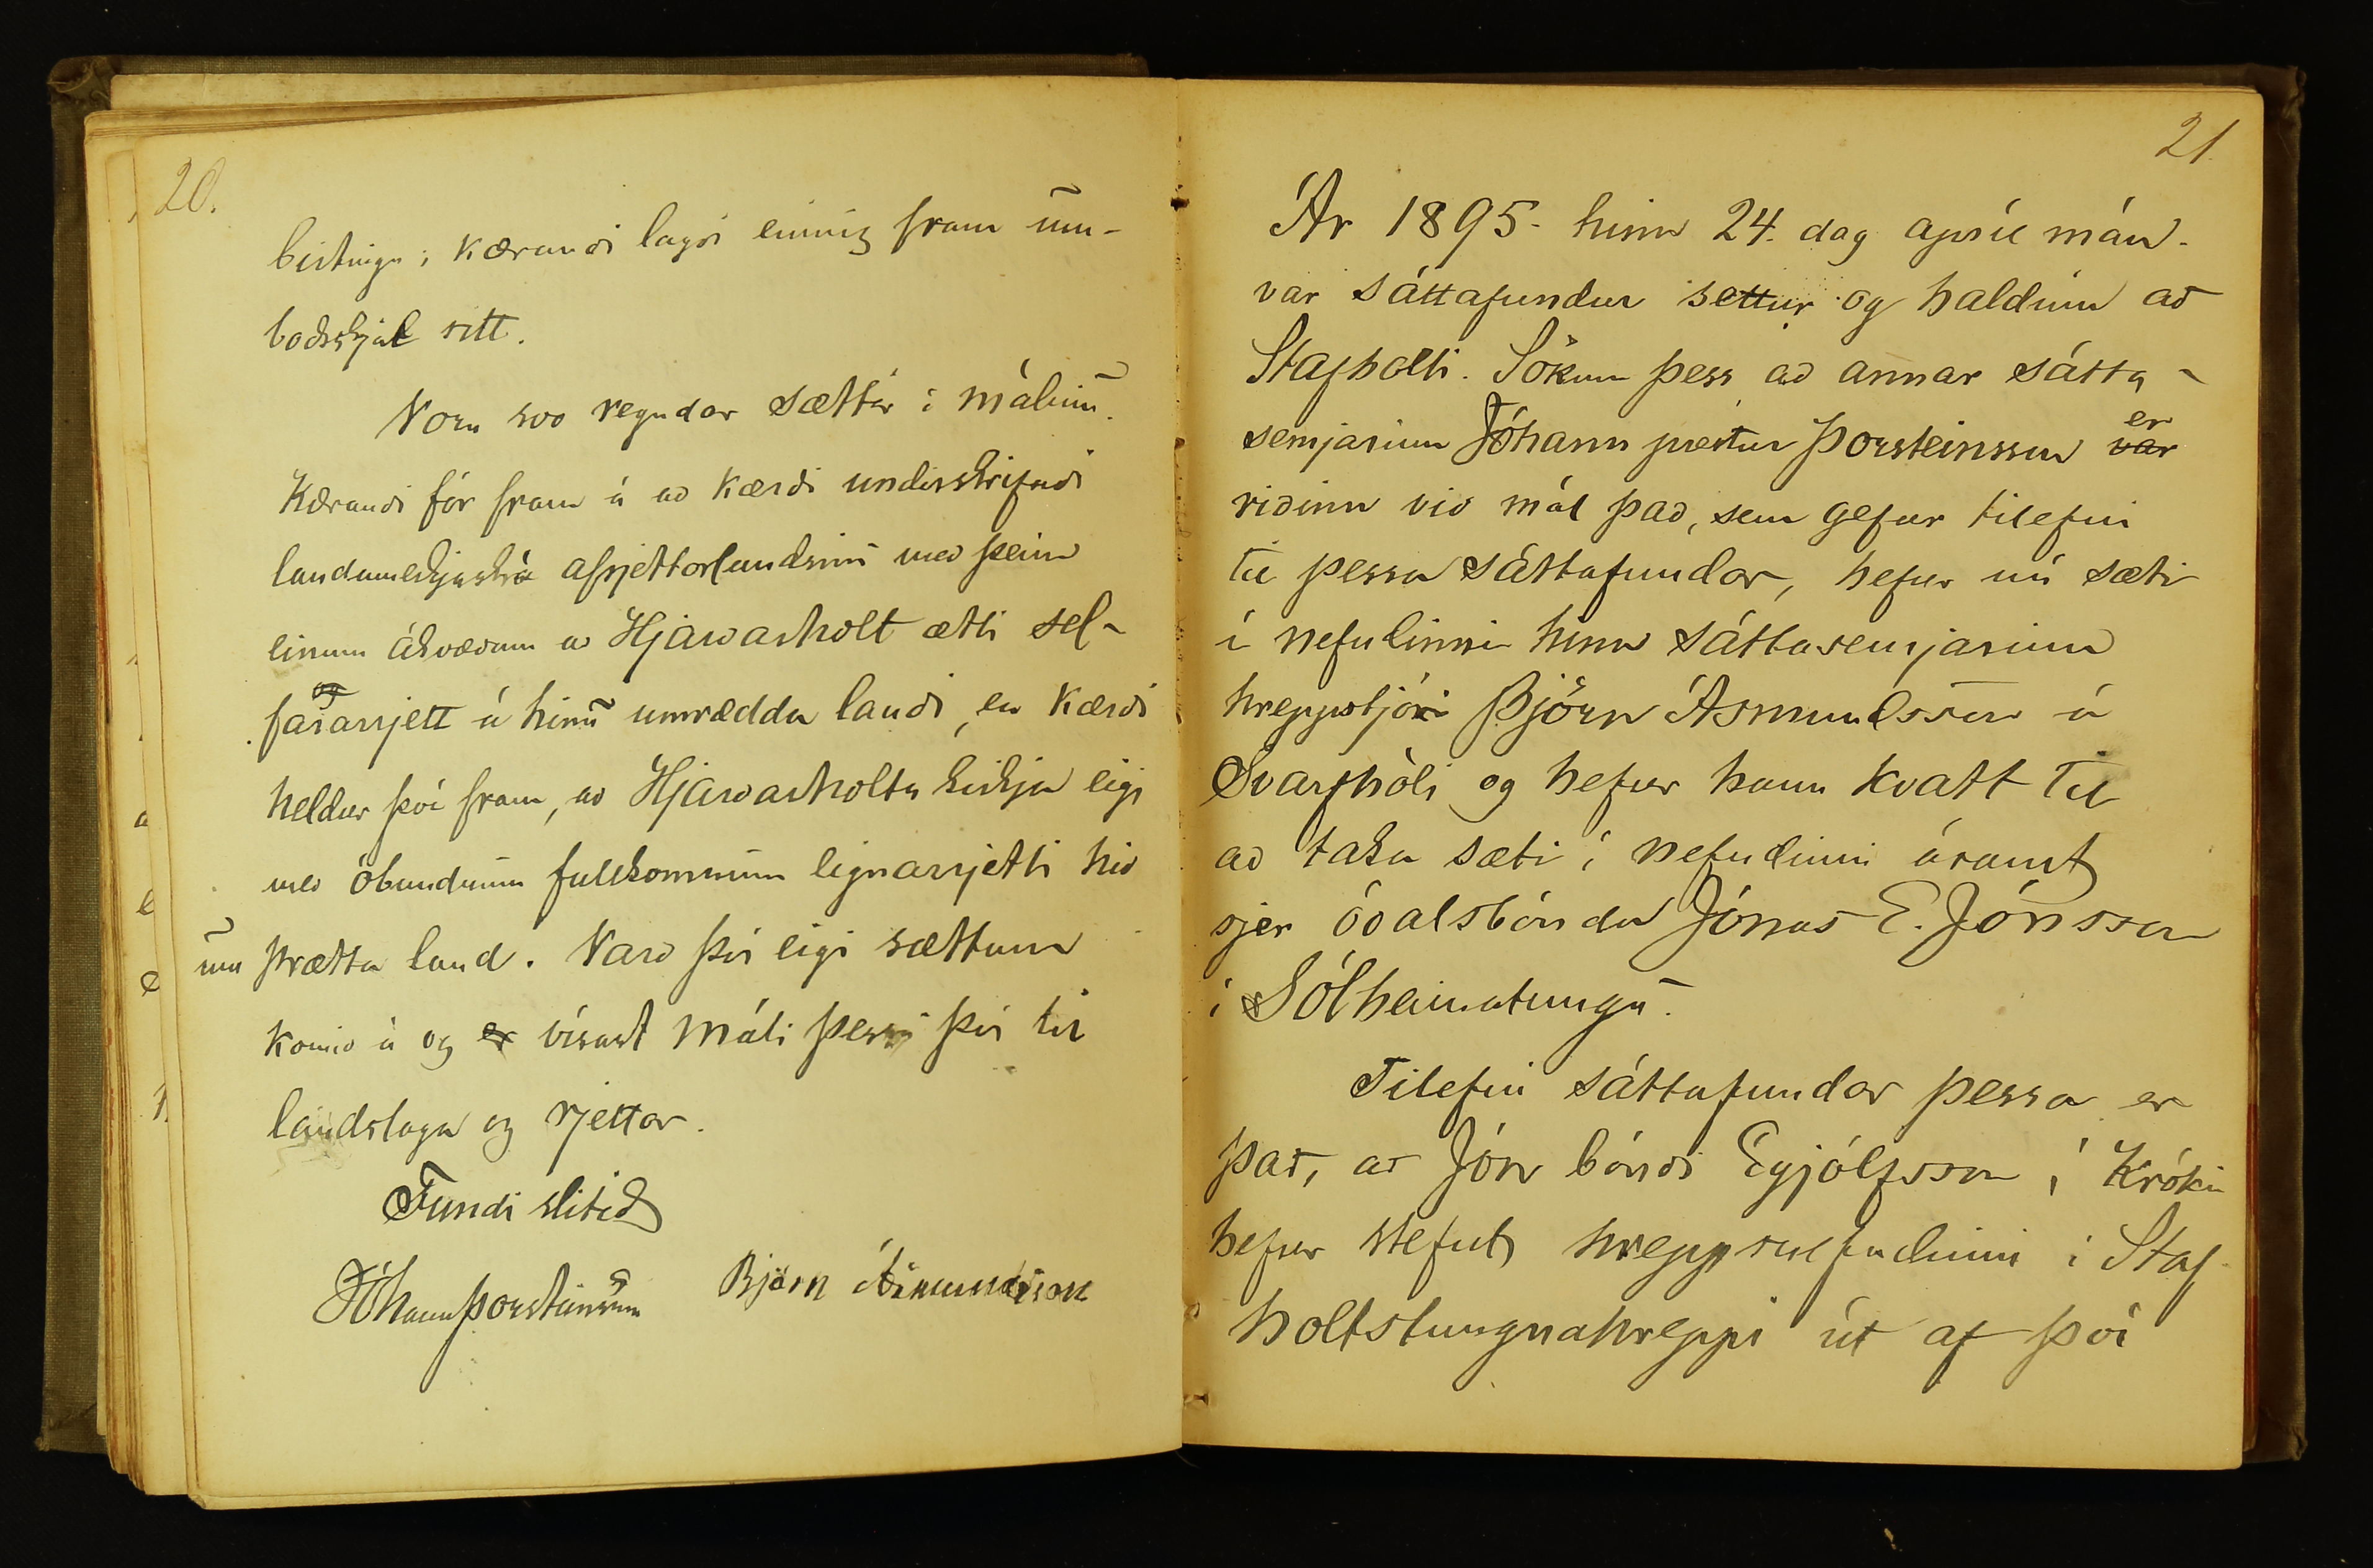 20.
birtingu; kærandi lagði einnig fram um-
boðsskjal sitt.
Voru svo reyndar sættir í málinu.
Kærandi fór fram á að kærði underskrifaði
landamerkjaskrá afrjettarlandsins með þeim
einum ákvæðum að Hjarðarholt ætti sel-
og
fararrjett á hinu umrædda landi, en kærði
heldur því fram, að Hjarðarholts kirkja eigi
með óbundnum fullkomnum eignarrjetti hið
um þrætta land. Varð því eigi sættum
komið á og er vísast máli þessu því til
landslaga og rjettar.
Fundi slitið
Jóhann Þorsteinsson Björn Ásmundsson
21
Ár 1895. hinn 24. dag apríl mán.
var sáttafundur settur og haldinn að
Stafholti. Sökum þess að annar sátta-
er
semjarinn Jóhann prestur Þorsteinsson var
riðinn við mál það, sem gefur tilefni
til þessa sáttafundar, hefur nú sæti
í nefndinni hinn sáttasemjarinn
hreppstjóri Björn Ásmundsson á
Svarfhóli og hefur hann kvatt til
að taka sæti í nefndinni ásamt
sjer óðalsbónda Jónas E. Jónsson
í Sólheimatungu.
Tilefni sáttafundar þessa er
það, að Jón bóndi Eyjólfsson í Króki
hefur stefnt hreppsnefndinni í Staf
holtstungnahreppi út af því